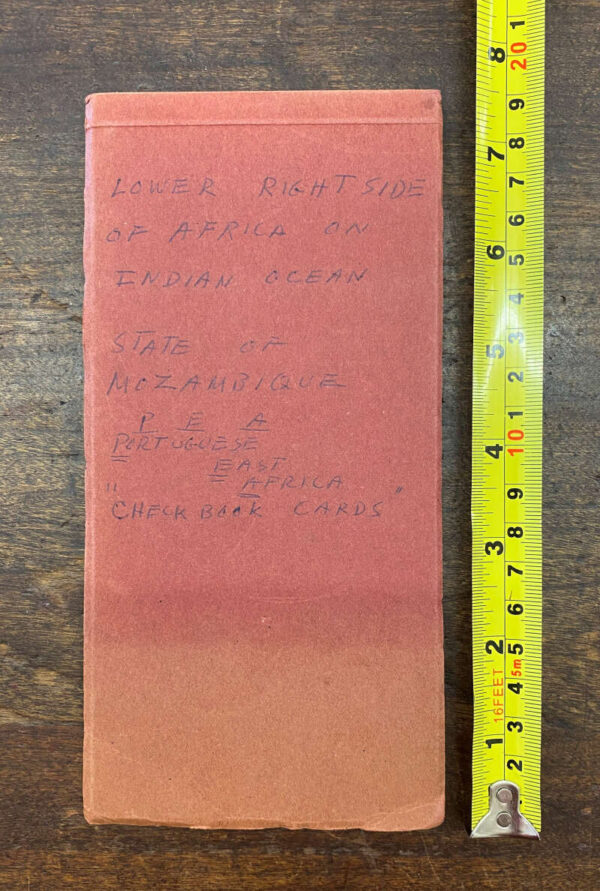 LOWER RIGHT SIDE
OF AFRICA ON
INDIAN OCEAN
STATE OF
MOZAMBIQUE
P E A
PORTUGUESE
EAST
" AFRICA
CHECK BOOK CARDS "
8
7
6
5
4
3
2
1
16FEET
1
20
9
8
7
6
5
4
3
2
1
10
9
8
7
6
5
5m
4
3
2